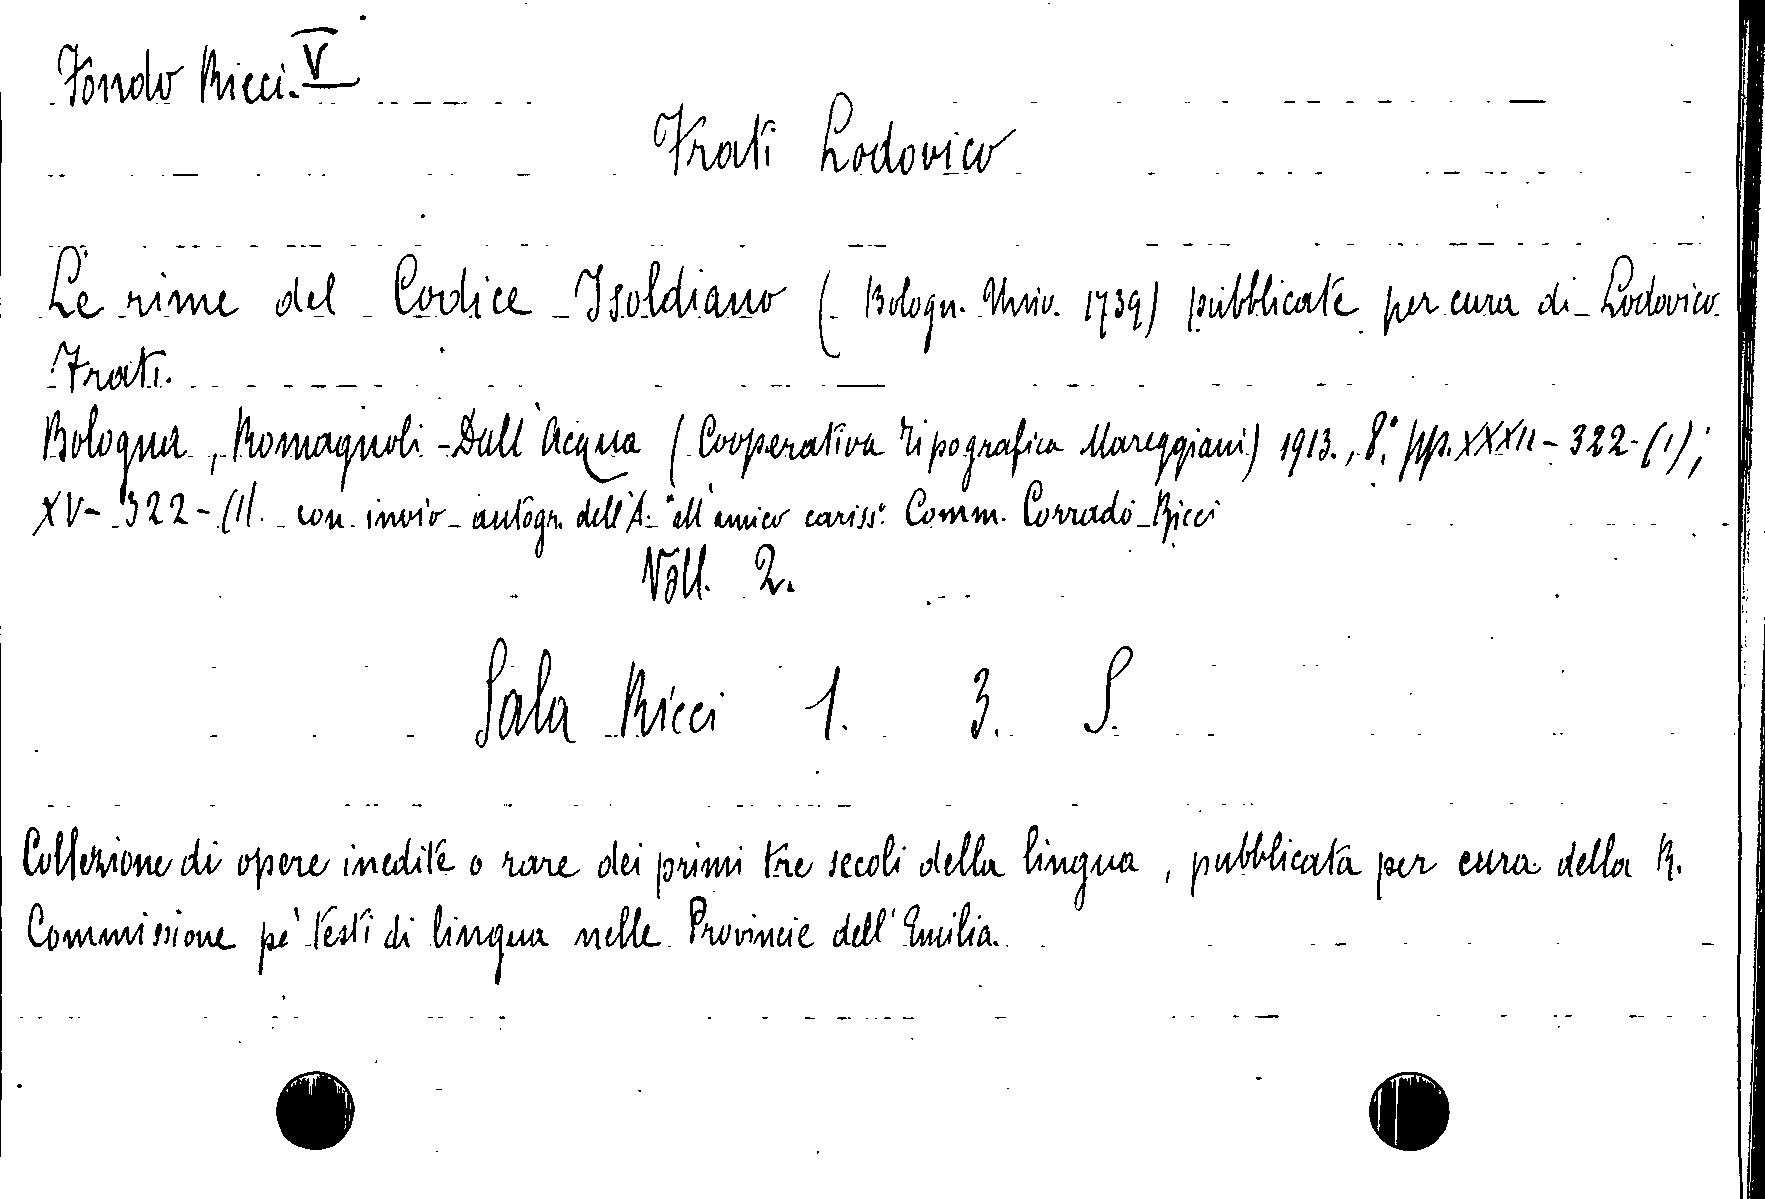 Fondo Ricci. V
Frati Lodovico
Le rime del Codice Isoldiano (Bologn. Univ. 1739) pubblicate per cura di Lodovico
Frati.
Bologna, Romagnoli-Dall'Acqua (Cooperativa Tipografica Mareggiani) 1913., 8.° pp. XXXII - 322 - (1);
XV - 322 - (1). con invio autogr. dell'A. "all'amico cariss.° Comm. Corrado Ricci
Voll. 2.
Sala Ricci 1. 3. S.
Collezione di opere inedite o rare dei primi tre secoli della lingua, pubblicata per cura della R.
Commissione pe' testi di lingua nelle Provincie dell'Emilia.